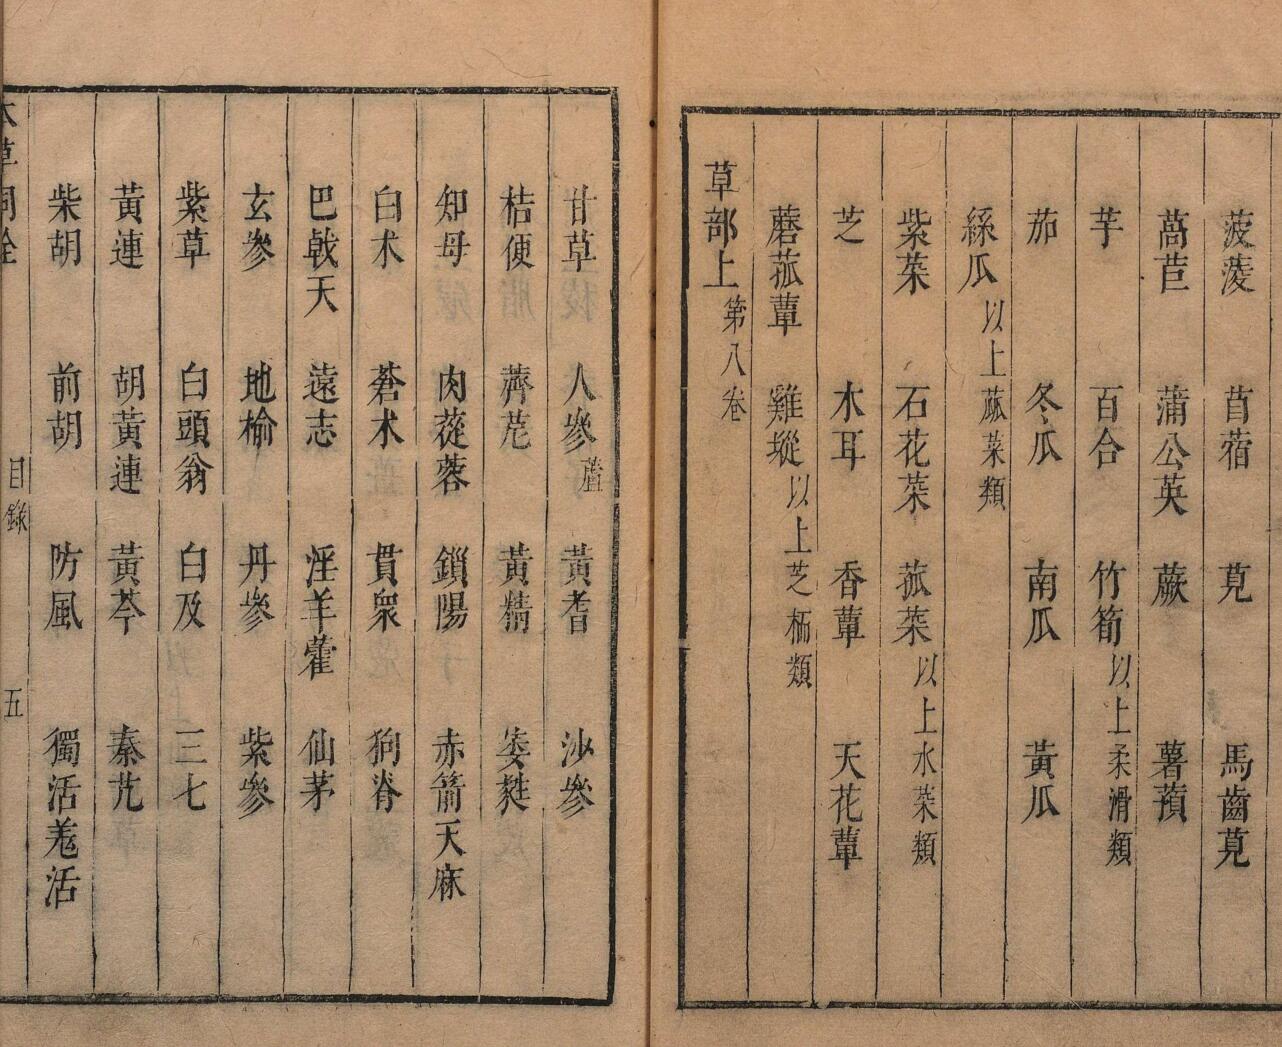 菠薐 苜蓿 莧 馬齒莧
萵苣 蒲公英 蕨 薯蕷
芋 百合 竹筍以上柔滑類
茄 冬瓜 南瓜 黃瓜
絲瓜以上蓏菜類
紫菜 石花菜 菰菜以上水菜類
芝 木耳 香蕈 天花蕈
蘑菰蕈 雞㙡以上芝栭類
草部上第八卷
甘草 人參蘆 黃耆 沙參
桔便 薺苨 黃精 萎蕤
知母 肉蓯蓉 鎖陽 赤箭天麻
白术 蒼术 貫衆 狗脊
巴戟天 遠志 淫羊藿 仙茅
玄參 地榆 丹參 紫參
紫草 白頭翁 白及 三七
黃連 胡黃連 黃芩 秦艽
柴胡 前胡 防風 獨活羗活
本草詞詮 目錄 五